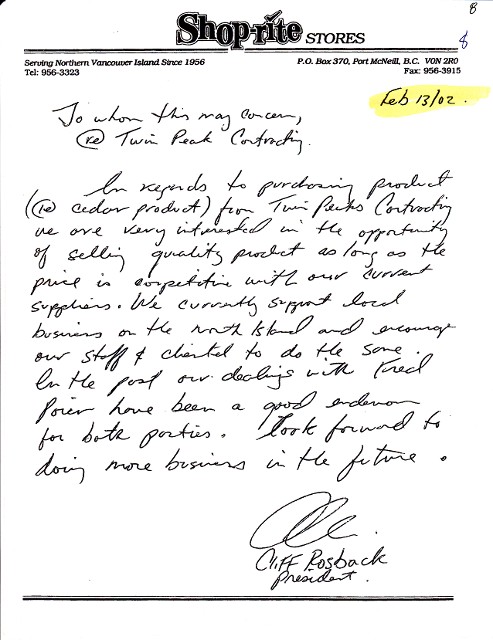 8
Shop-rite STORES
8
Serving Northern Vancouver Island Since 1956
P.O. Box 370, Port McNeill, B.C. V0N 2R0
Tel: 956-3323
Fax: 956-3915
Feb 13/02.
To whom this may concern,
(re) Twin Peak Contracting.
In regards to purchasing product
(re cedar product) from Twin Peaks Contracting
we are very interested in the opportunity
of selling quality product as long as the
price is competitive with our current
suppliers. We currently support local
business on the north Island and encourage
our staff & clientel to do the same.
In the past our dealings with Fred
have been a good endeavour
for both parties. Look forward to
doing more business in the future.
Cliff Rosback
President.